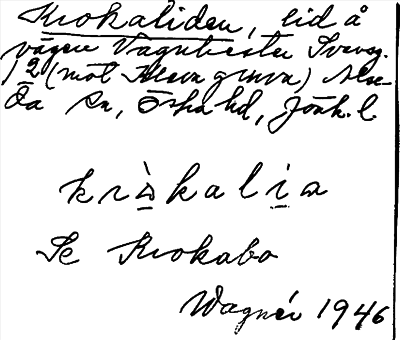 Krokaliden, lid å
vägen Vagnhester Sveseg.
12 (mot Kleva gruva) Alse-
da sn, Östra hd, Jönk. l.
kròkalia
Se Krokabo
Wagnér 1946